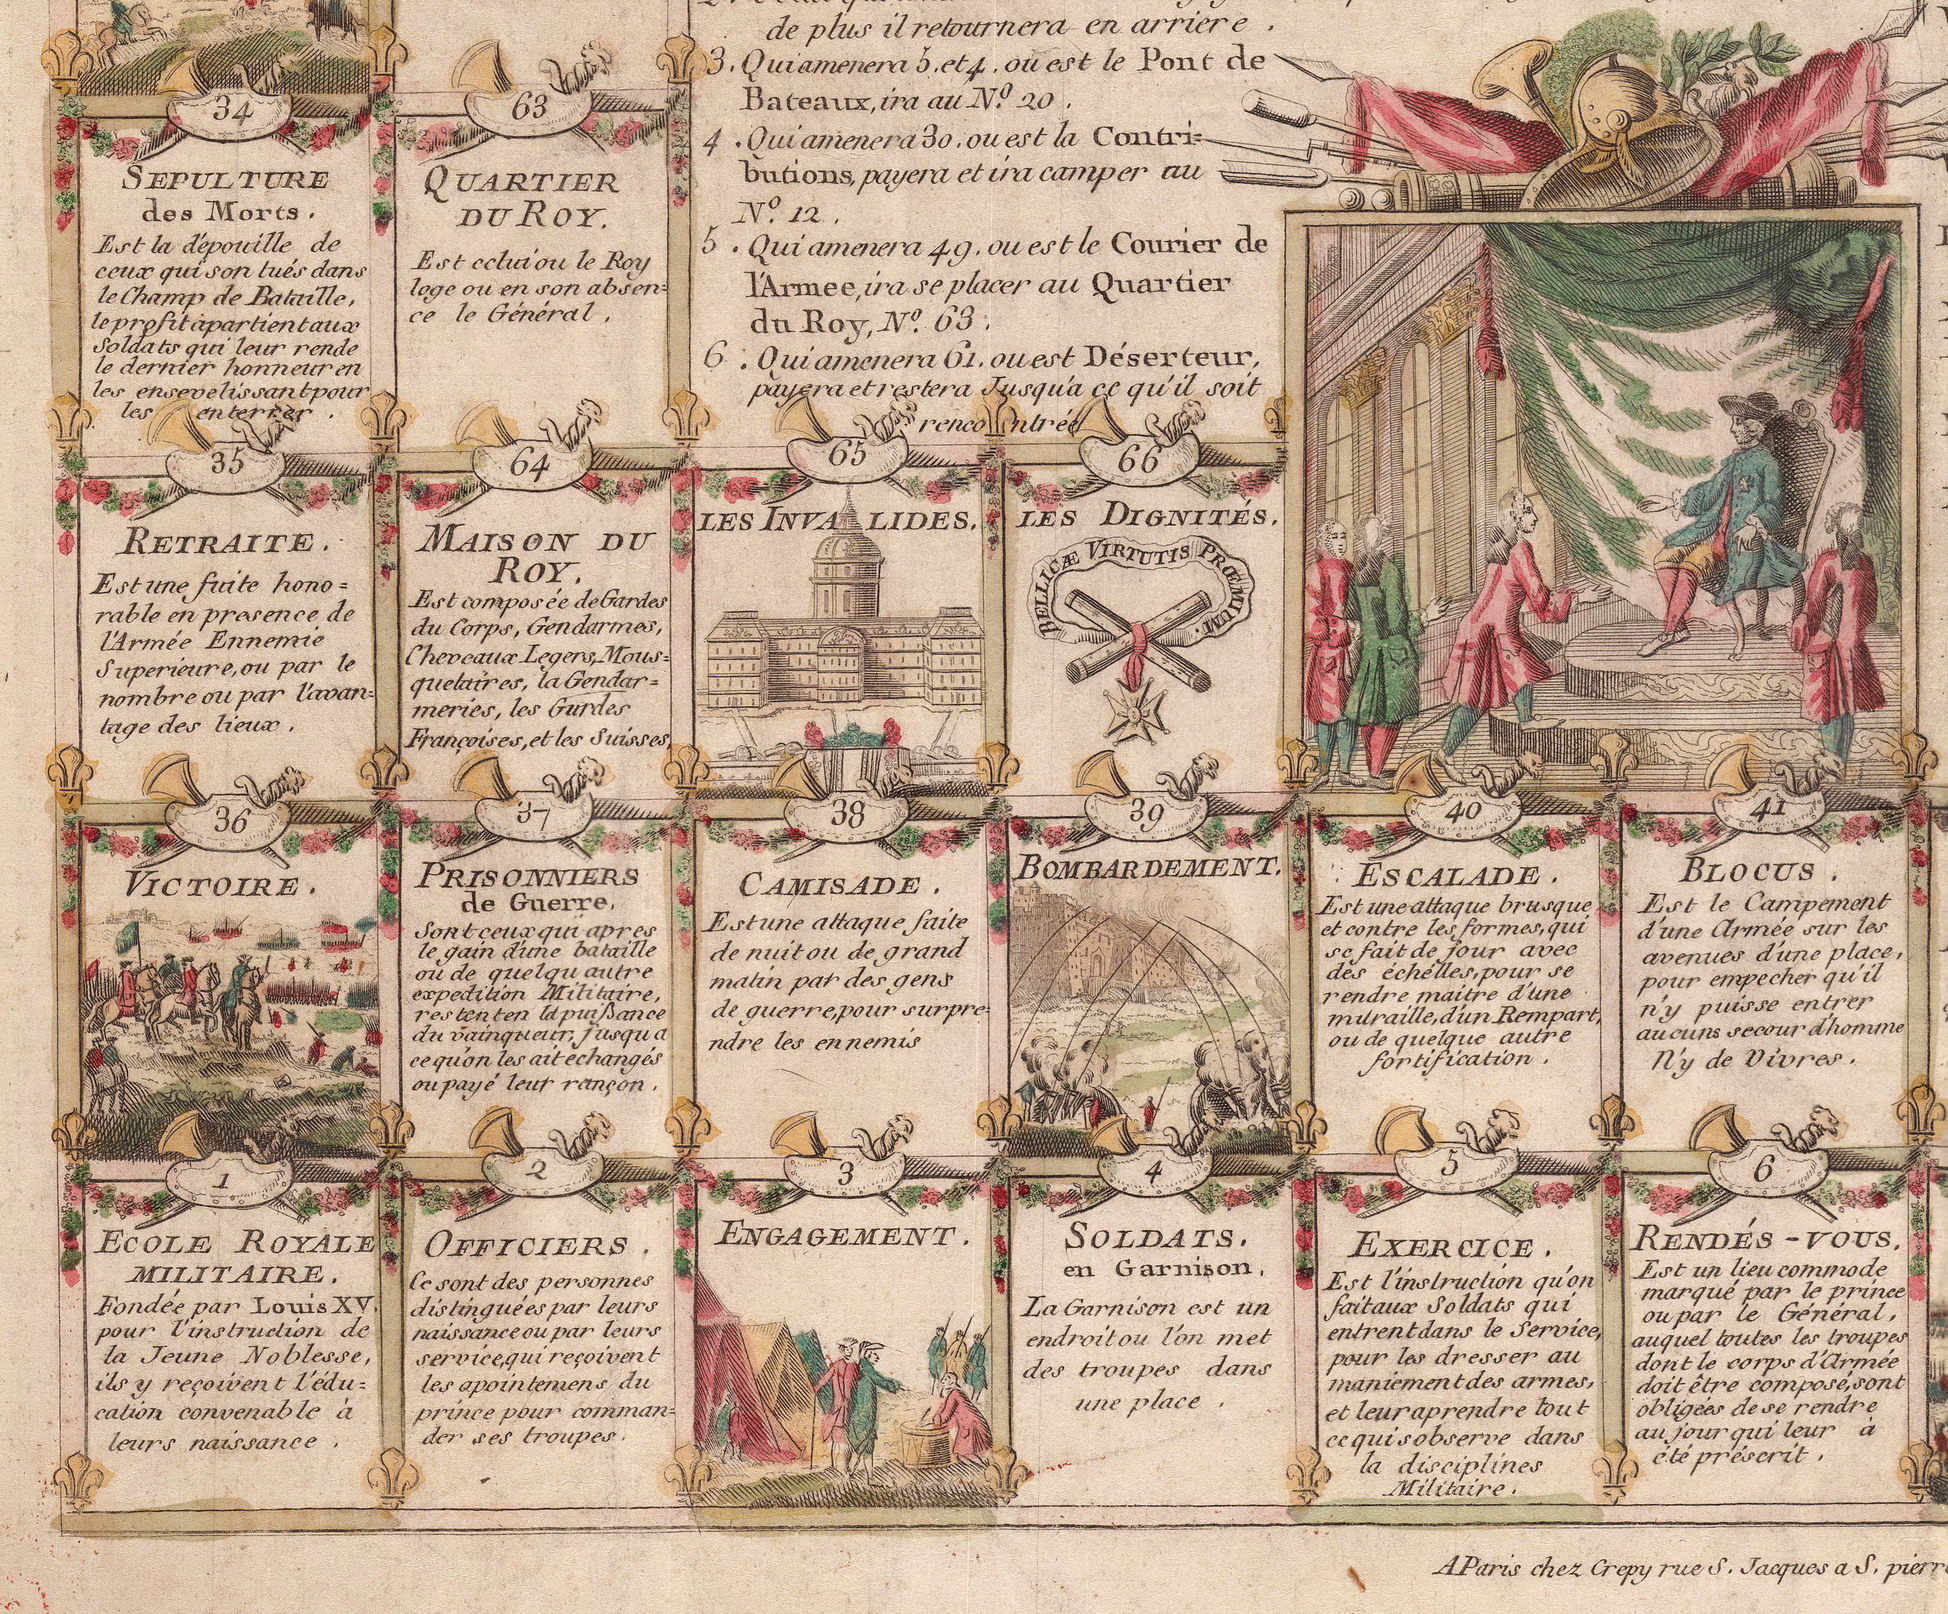 de plus il retournera en arriere .
3. Qui amenera 5. et 4. ou est le Pont de
Bateaux, ira au N.o 20 .
4 . Qui amenera 30. ou est la Contri=
butions, payera et ira camper au
N.o 12 .
5 . Qui amenera 49. ou est le Courier de
l'Armee, ira se placer au Quartier
du Roy, N.o 63 .
6 . Qui amenera 61. ou est Déserteur,
payera et restera Jusqu'a ce qu'il soit
rencontrée
34
SEPULTURE
des Morts .
Est la dépouille de
ceux qui son tués dans
le Champ de Bataille,
le profit apartient aux
Soldats qui leur rende
le dernier honneur en
les ensevelissant pour
les enterrer .
63
QUARTIER
DU ROY.
Est celui ou le Roy
loge ou en son absen=
ce le Général .
35
RETRAITE .
Est une fuite hono=
rable en presence de
l'Armée Ennemie
Superieure, ou par le
nombre ou par l'avan=
tage des lieux .
64
MAISON DU
ROY.
Est composée de Gardes
du Corps, Gendarmes,
Cheveaux Legers, Mous=
quetaires, la Gendar=
meries, les Gardes
Françoises, et les Suisses,
65
LES INVALIDES.
66
LES DIGNITÉS.
BELLICÆ VIRTUTIS PRŒMIUM.
36
VICTOIRE .
37
PRISONNIERS
de Guerre.
Sont ceux qui apres
le gain d'une bataille
ou de quelqu'autre
expedition Militaire,
restent en la puissance
du vainqueur, jusqu'a
ce qu'on les ait echangés
ou payé leur rançon .
38
CAMISADE .
Est une attaque faite
de nuit ou de grand
matin par des gens
de guerre, pour surpre=
ndre les ennemis
39
BOMBARDEMENT.
40
ESCALADE .
Est une attaque brusque
et contre les formes, qui
se fait de jour avec
des échelles, pour se
rendre maitre d'une
muraille, d'un Rempart,
ou de quelque autre
fortification .
41
BLOCUS .
Est le Campement
d'une Armée sur les
avenues d'une place,
pour empecher qu'il
n'y puisse entrer
aucuns secour d'homme
N'y de Vivres .
1
ECOLE ROYALE
MILITAIRE .
Fondée par Louis XV.
pour l'instruction de
la Jeune Noblesse,
ils y reçoivent l'édu=
cation convenable à
leurs naissance .
2
OFFICIERS .
Ce sont des personnes
distinguées par leurs
naissance ou par leurs
service, qui reçoivent
les apointemens du
prince pour comman=
der ses troupes .
3
ENGAGEMENT .
4
SOLDATS .
en Garnison .
La Garnison est un
endroit ou l'on met
des troupes dans
une place .
5
EXERCICE .
Est l'instruction qu'on
fait aux Soldats qui
entrent dans le Service,
pour les dresser au
maniement des armes,
et leur aprendre tout
ce qui s'observe dans
la disciplines
Militaire .
6
RENDÉS-VOUS.
Est un lieu commode
marqué par le prince
ou par le Général,
auquel toutes les troupes
dont le corps d'Armée
doit être composé, sont
obligées de se rendre
au jour qui leur à
été préscrit .
A Paris chez Crepy rue S. Jacques a S. pierre